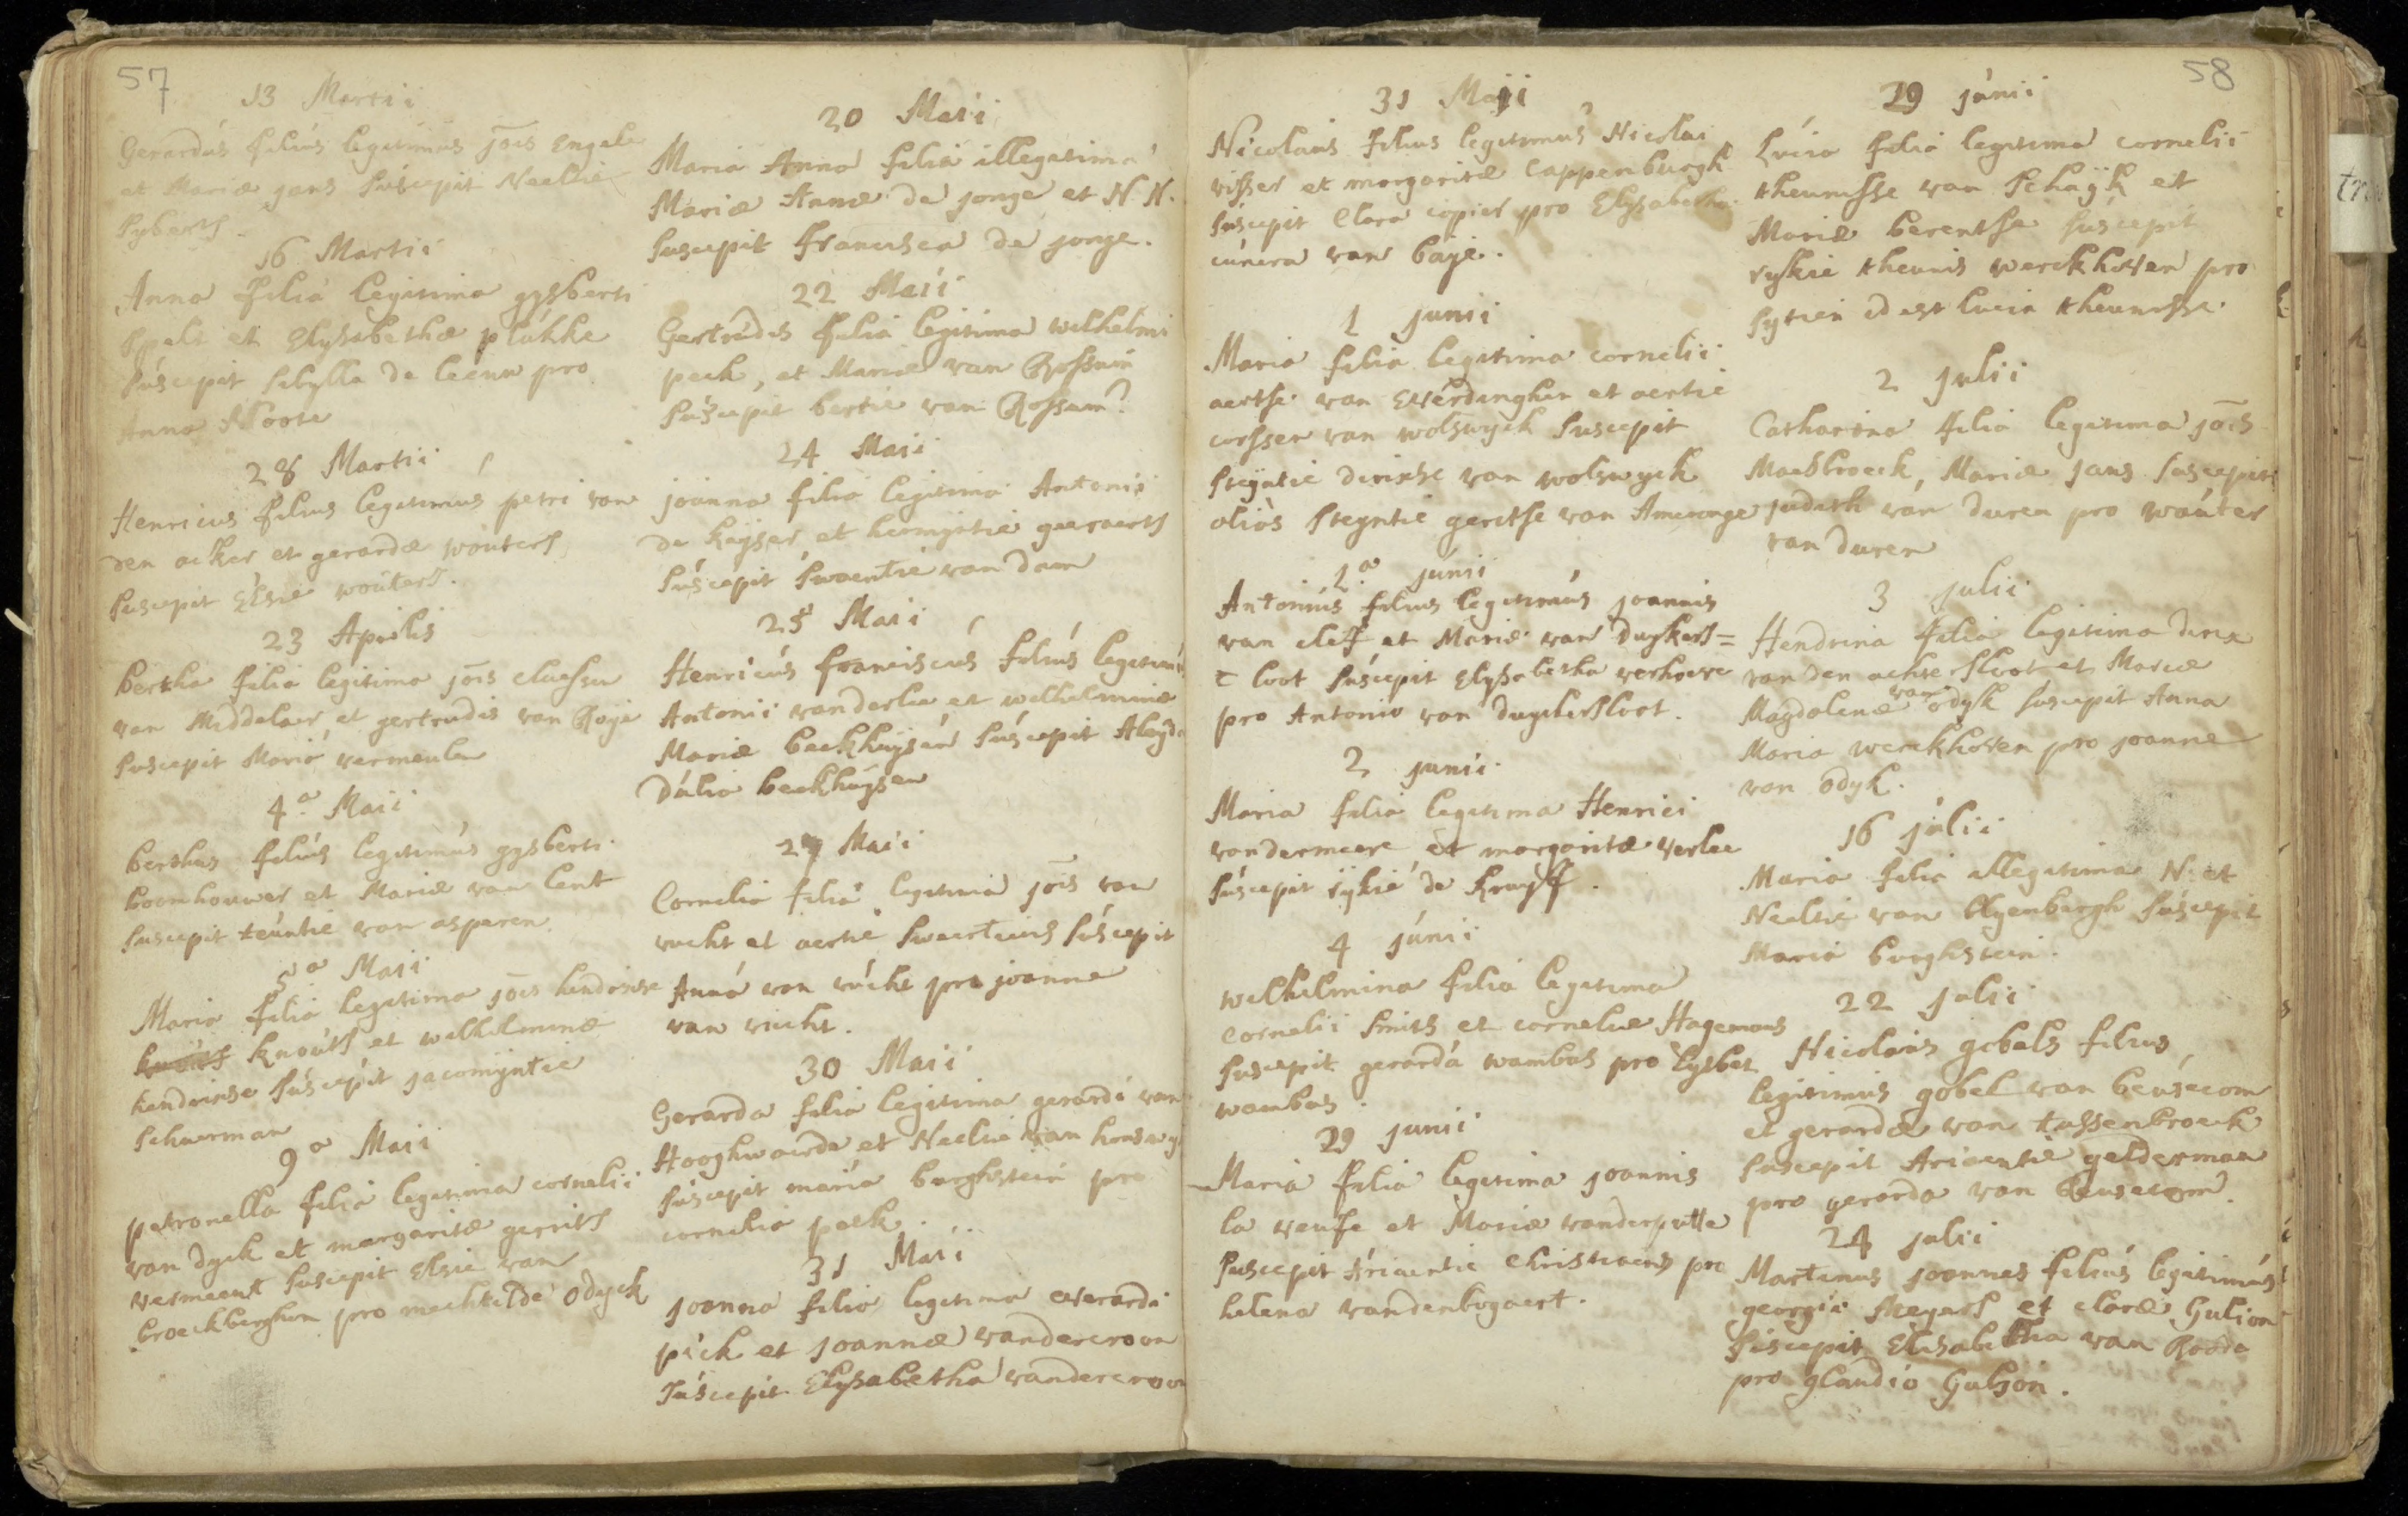 57
13 Martii
Gerardus filius legitimus jois Engele
et Mariæ jans suscepit Neeltie
Syberts.
16 Martii
Anna filia legitima gysberti
Spelt et Elysabethæ plukke
suscepit sibylla de leeuw pro
Anna
28 Martii
Henricus filius legitimus petri van
den acker et gerardæ wouters
suscepit Elsie wouters.
23 Aprilis
bertha filia legitima jois claessen
van Middelaer et gertrudis van Roye
suscepit Maria vermeulen
4.a Maii
berthus filius legitimus gysberti
boomhouwer et Mariæ van lent
suscepit teuntie van asperen
5a Maii
Maria filia legitima jois hendrikse
knouts et wilhelminæ
hendrikse suscepit jacomijntie
schuerman
9a Maii
petronella filia legitima cornelii
van dyck et margaritæ gerrits
vermeent suscepit Elsie van
broeckberghen pro mechtilde odyck
20 Maii
Maria Anna filia illegitima
Mariæ Annæ de jonge et N.N.
suscepit francisca de jonge.
22 Maii
Gertrudis filia legitima wilhelmi
peck, et Mariæ van Rossum
suscepit bertie van Rossum
24 Maii
joanna filia legitima Antonii
de keyser et hermijntie geeraerts
suscepit swaentie van dam
25 Maii
Henricus franciscus filius legitimus
Antonii vanderlee et wilhelminæ
Mariæ beckhuysen suscepit Aleyda
dalia beckhuysen
27 Maii
Cornelia filia legitima jois van
vucht et aertie sweerteins suscepit
Anna van vucht pro joanne
van vucht.
30 Maii
Gerarda filia legitima gerardi van
Hooghwaerde et Neeltie van
suscepit maria burghstein pro
cornelia peck.
31 Maii
joanna filia legitima everardi
pick et joannæ vandercroon
suscepit Elysabetha vandercroon
58
31 Maji
Nicolaus filius legitimus Nicolai
visser et margaritæ Cappenburgh
suscepit Clara copier pro Elysabetha
cunera van baije.
1 junii
Maria filia legitima cornelii
aertse van Everdinghen et aertie
corssen van wolswyck suscepit
steyntie dirixse van wolswyck
alias steyntie geritse van Amerongen
1.a junii
Antonius filius legitimus joannis
van cleff et Mariæ van duykers=
loot suscepit Elysabetha verhoeve
pro Antonio van duyckersloot.
2 junii
Maria filia legitima Henrici
vandermeere et margaritæ verlee
suscepit sijkie de kruyff.
4 junii
wilhelmina filia legitima
cornelii smits et corneliæ Hagemans
suscepit gerarda wambas pro lysbet
wambas.
29 junii
Maria filia legitima joannis
la veufe et Mariæ vanderputte
suscepit Ariaentie christiaens pro
helena vandenbogaert.
29 junii
Lucia filia legitima cornelii
theunisse van schayk et
Mariæ berentse suscepit
rykie theunis werckhoven pro
sytien id est lucia theunisse.
2 julii
Catharina filia legitima jois
Maesbroeck, Mariæ jans suscepit
judith van duren pro wouter
van duren
3 julii
Hendrina filia legitima dirix
van den achtersloot et Mariæ
Magdalenæ van odyk suscepit Anna
Maria werckhoven pro joanne
van odyk.
16 julii
Maria filia illegitima N: et
Neeltie van blyenburgh suscepit
Maria burghstein.
22 julii
Nicolaus gobels filius
legitimus gobel van beusecom
et gerardæ van tussenbroeck
suscepit Ariaentie gelderman
pro gerarda van Beusecom.
24 julii
Martinus joannes filius legitimus
georgii Megars et claræ Gulion
suscepit Elisabetha van Roode
pro glaudio Guljon.